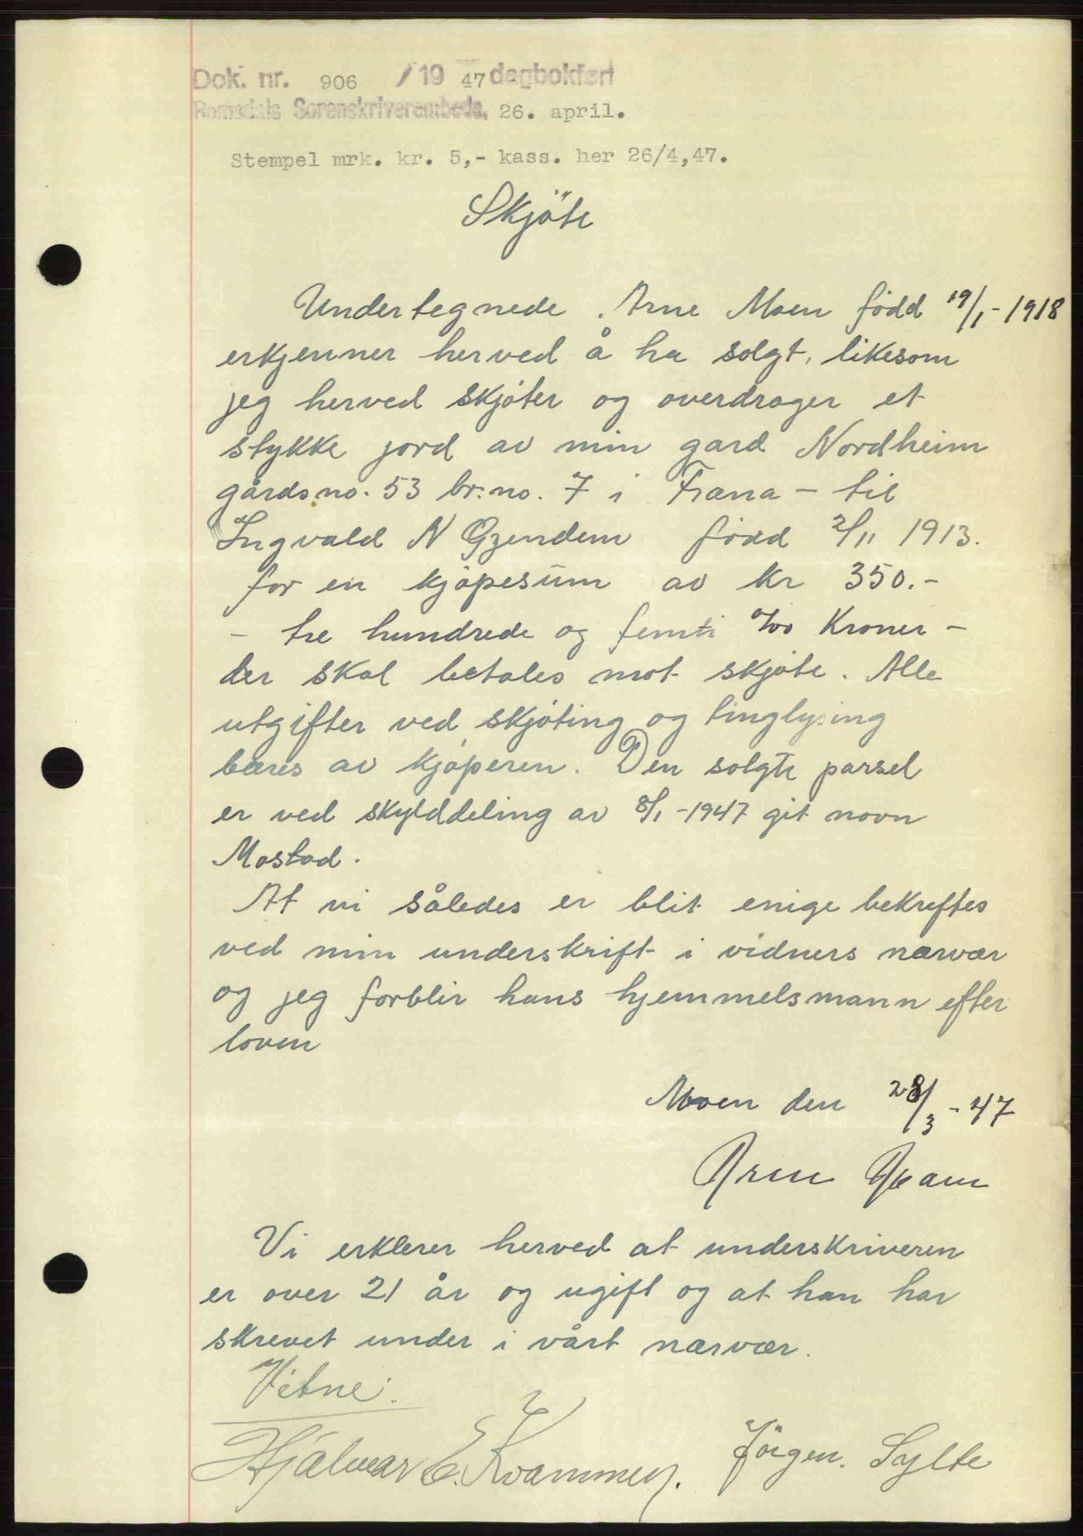 Dok. nr. 906 / 19 47 dagbokført
Romsdals Sorenskriverembede, 26. april.
Stempel mrk. kr. 5,- kass. her 26/4,47.
Skjöte
Undertegnede Arne Moen född 19/1-1918
erkjenner herved å ha solgt, likesom
jeg herved skjøter og overdrager et
stykke jord av min gard Nordheim
gårdsno. 53 br.no. 7 i Fræna - til
Ingvald N Gjendem född 2/11 1913.
for en kjøpesum av kr 350.-
- tre hundrede og femti 0/00 Kroner -
der skal betales mot skjøte. Alle
utgifter ved skjøting og tinglysing
bæres av kjøperen. Den solgte parsel
er ved skylddeling av 8/1-1947 git navn
Mostad.
At vi således er blit enige bekreftes
ved min underskrift i vidners nærvær
og jeg forblir hans hjemmelsmann efter
loven
Moen den 28/3-47
Arne Moen
Vi erklerer herved at underskriveren
er over 21 år og ugift og at han har
skrevet under i vårt nærvær.
Vitne:
Hjalmar E. Kvammen. Jörgen. Sylte